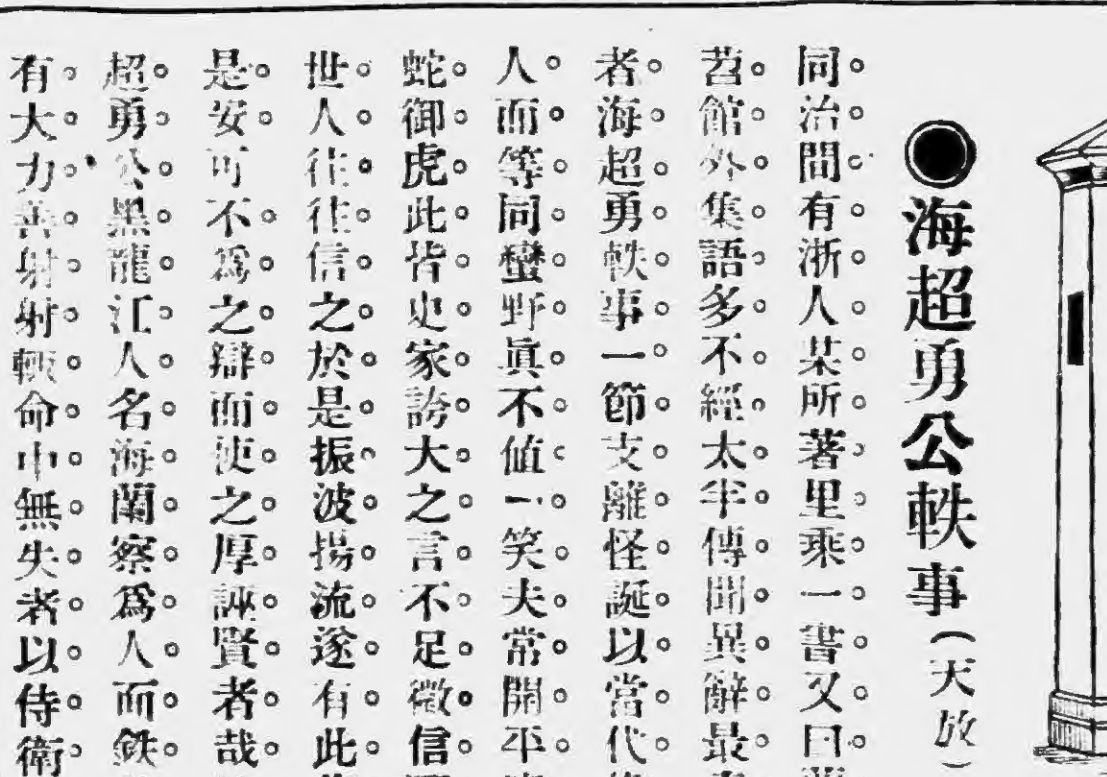 ●海超勇公軼事(天放)
同治間有浙人某所著里乘一書又曰
苕館外集語多不經太半傳聞異辭最
者海超勇軼事一節支離怪誕以當代
人而等同蠻野眞不値一笑夫常開平
蛇御虎此皆史家誇大之言不足徵信
世人往往信之於是振波揚流遂有此
是安可不爲之辯而使之厚誣賢者哉
超勇公黑龍江人名海蘭察爲人而鉄
有大力善射射輙命中無失者以侍衛